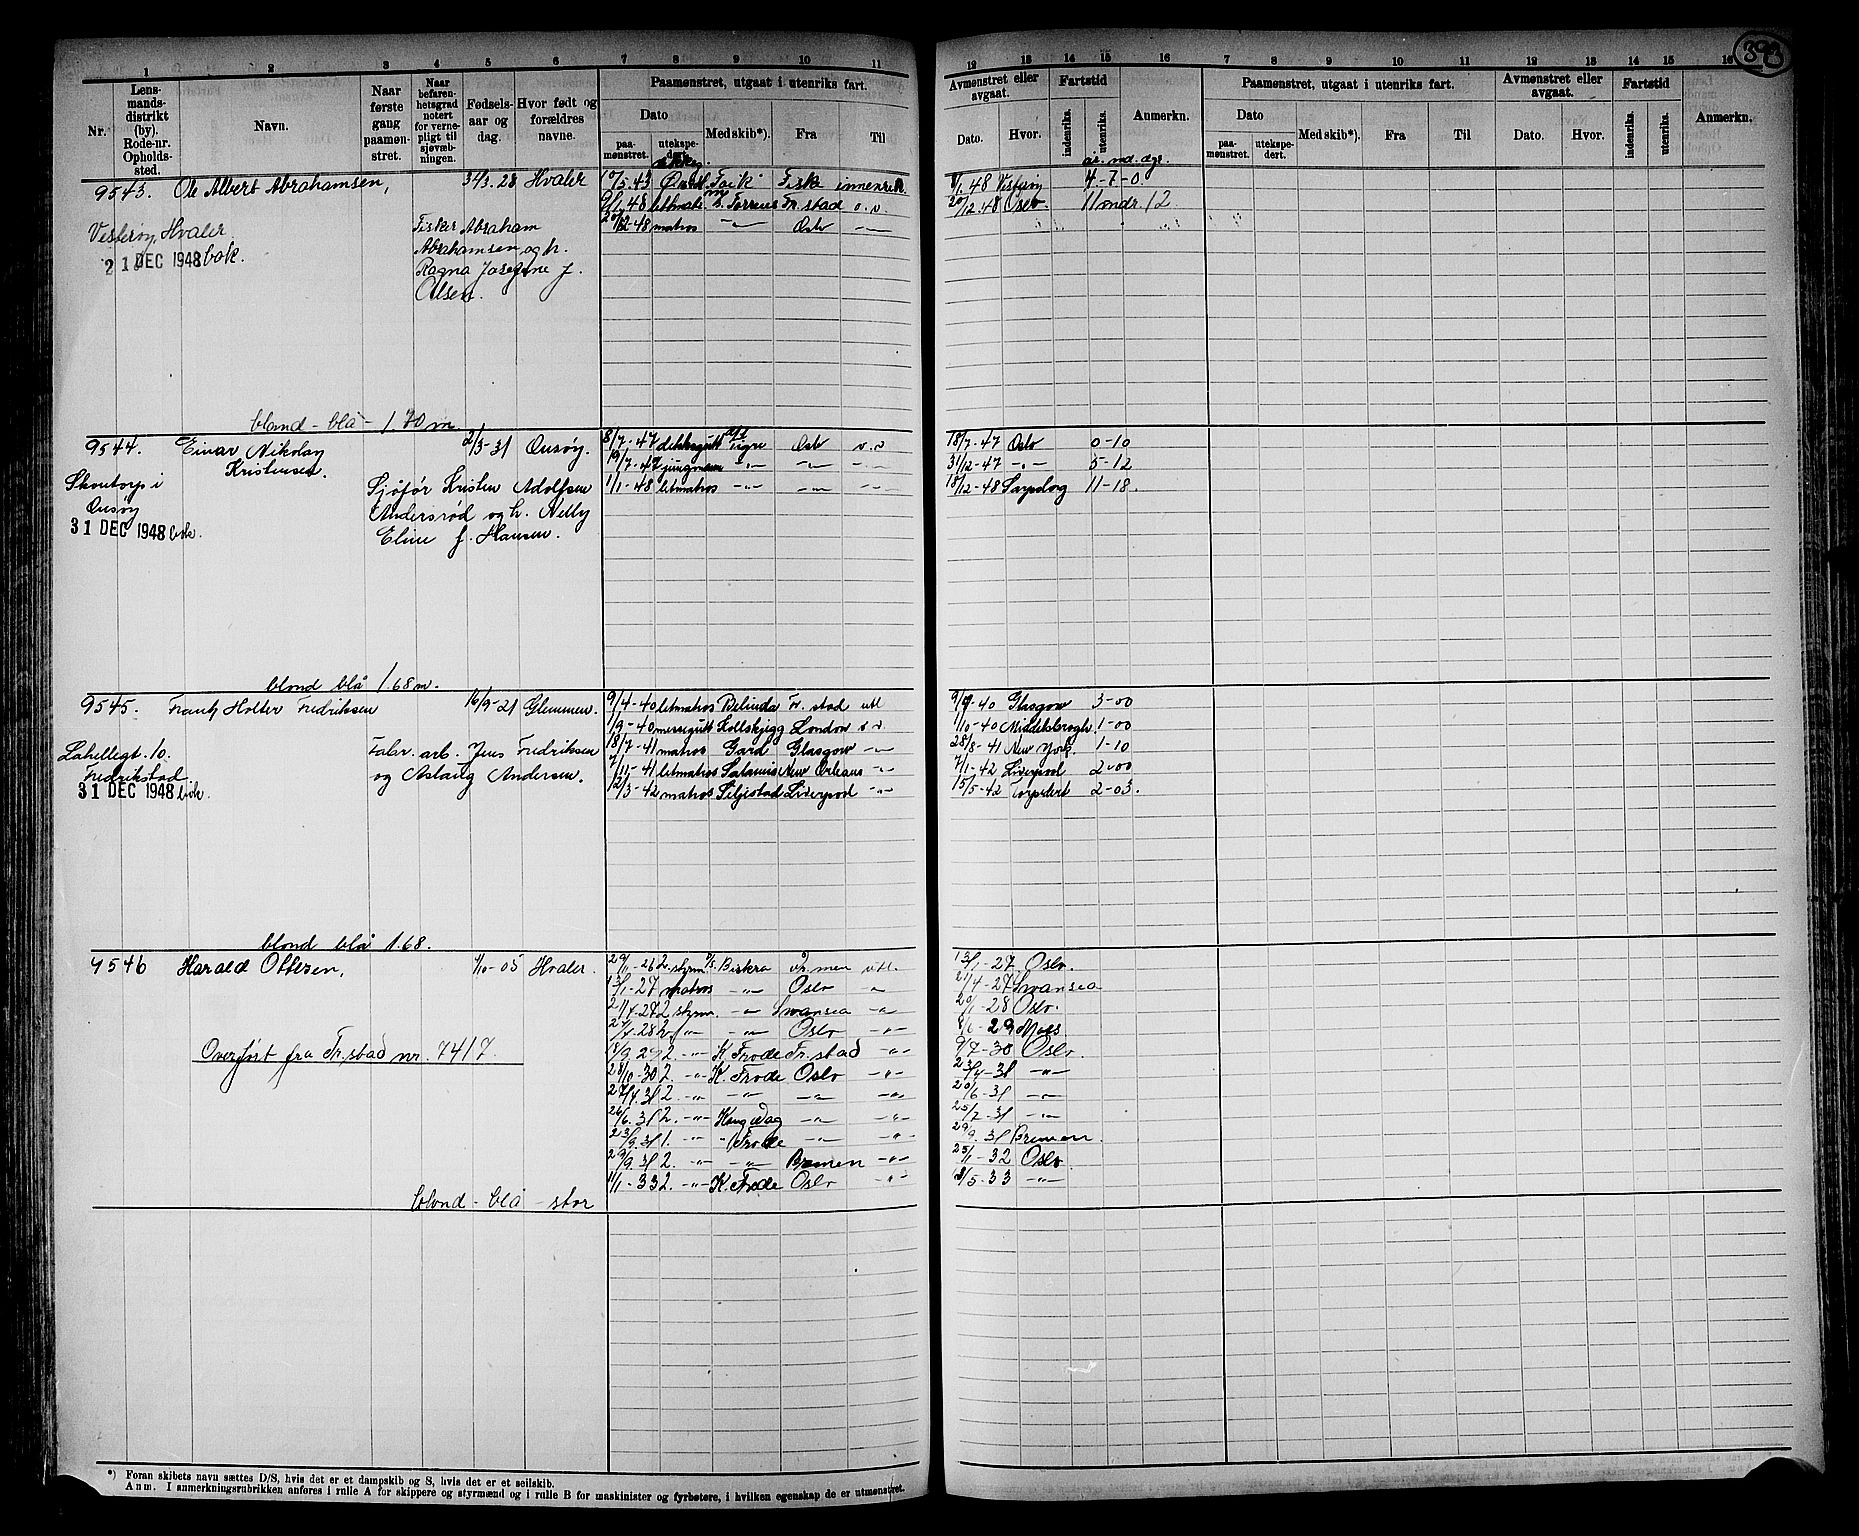 393
1 2 3 4 5 6 7 8 9 10 11
12 13 14 15 16 7 8 9 10 11 12 13 14 15 16
Nr. Lensmandsdistrikt (by). Rode-nr. Opholdssted. Navn. Naar første gang paamønstret. Naar befarenhetsgrad notert for vernepligt til sjøvæbningen. Fødselsaar og dag. Hvor født og forældres navne.
Paamønstret, utgaat i utenriks fart.
Dato paamønstret. utekspedert. Med skib*). Fra Til
Avmønstret eller avgaat. Dato. Hvor. Fartstid indenriks. utenriks. Anmerkn.
Paamønstret, utgaat i utenriks fart.
Dato paamønstret. utekspedert. Med skib*). Fra Til
Avmønstret eller avgaat. Dato. Hvor. Fartstid indenriks. utenriks. Anmerkn.
år. md. dge.
9543. Ole Albert Abrahamsen, 3/3.28 Hvaler
Vesterøy, Hvaler.
21 DEC 1948 bok.
Fisker Abraham
Abrahamsen og h.
Ragna Josefine f.
Olsen.
10/5.43 Fisk innenrik. 9/1.48 Vesterøy 4-7-0.
9/1.48 letmatr. Fr.stad u.v. 20/12.48 Oslo. 11 mdr 12
20/12-48 matros -"- Oslo -"-
blond - blå - 1.70 m
9544. Einar Nikolay
Kristensen. 2/3-31 Onsøy.
Skontorp i
Onsøy
31 DEC 1948 bok.
Sjøfør Kristen Adolfsen
Andersrød og h. Nelly
Eline f. Hansen.
8/7-47 dekksgutt Tigre Oslo u.v 18/7-47 Oslo 0-10
19/7-47 jungmann -"- -"- -"- 31/12-47 -"- 5-12
1/1-48 letmatros -"- -"- -"- 18/12-48 Sarpsborg 11-18.
blond blå 1.68 m.
9545. Frank Holter Fredriksen 16/9-21 Glemmen.
Labellegt. 10.
Fredrikstad
31 DEC 1948 bok.
Fabr. arb. Jens Fredriksen
og Aslaug Andersen.
9/4-40 letmatros Belinda Fr.stad utl 9/7-40 Glasgow 3-00
1/9-40 messegutt Kollskjegg London u.v. 1/10-40 Middelsbrogh. 1-00
18/7-41 matros Gard Glasgow -"- 28/8-41 New York. 1-10
7/11-41 letmatros Salamis New Orleans -"- 7/1-42 Liverpool 2-00
12/3-42 matros Siljestad Liverpool -"- 15/5-42 Torpedert 2-03.
blond blå 1.68.
9546 Harald Ottesen, 1/10-05 Hvaler.
Overført fra Fr.stad nr. 7417.
29/11-26 2. styrm D/S. Biskra Dr.men utl. 13/1-27 Oslo.
13/1-27 matros -"- Oslo -"- 21/4-27 Swansea
21/4-27 2 styrm. -"- Swansea -"- 20/1-28 Oslo.
-"- -"- Oslo -"- 8/6-29 Moss
2. -"- K. Frode Fr.stad -"- 9/7-30 Oslo.
28/10-30 2. -"- K. Frode Oslo -"- 23/4-31 -"-
27/4.31 2. -"- -"- -"- -"- 20/6-31 -"-
26/6.31 2. -"- Kong Dag -"- -"- 25/7-31 -"-
23/9.31 1. -"- " Frode -"- -"- 29/9.31 Bremen.
29/9.31 2. -"- -"- Bremen -"- 25/1-32 Oslo
11/1-33 2. -"- K Frode Oslo -"- 12/5-33 -"-
blond - blå - stor
*) Foran skibets navn sættes D/S, hvis det er et dampskib og S, hvis det er et seilskib.
Anm. I anmerkningsrubrikken anføres i rulle A for skippere og styrmænd og i rulle B for maskinister og fyrbøtere, i hvilken egenskap de er utmønstret.